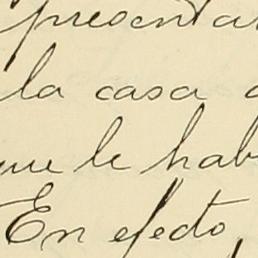 presentar
la casa
que le hab
En efecto,